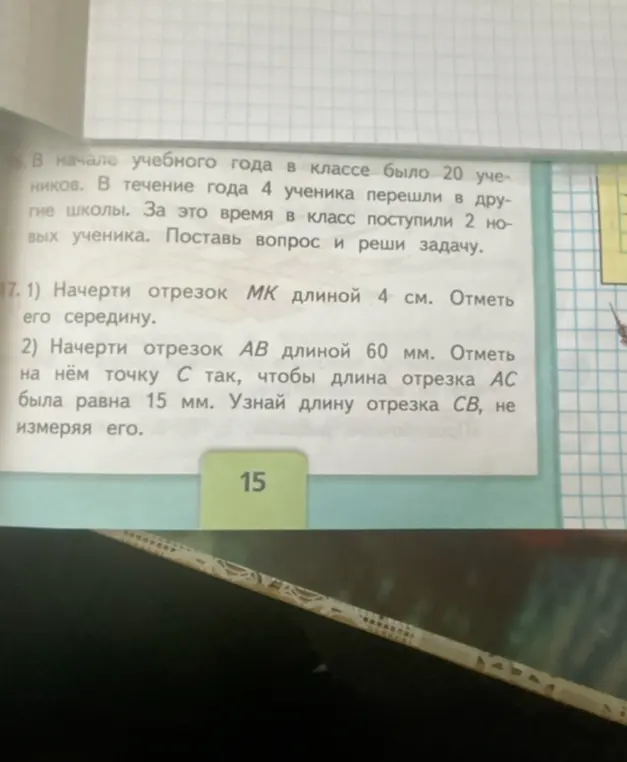 В начале учебного года в классе было 20 уче-
ников. В течение года 4 ученика перешли в дру-
гие школы. За это время в класс поступили 2 но-
вых ученика. Поставь вопрос и реши задачу.
17. 1) Начерти отрезок МК длиной 4 см. Отметь
его середину.
2) Начерти отрезок АВ длиной 60 мм. Отметь
на нём точку С так, чтобы длина отрезка АС
была равна 15 мм. Узнай длину отрезка СВ, не
измеряя его.
15